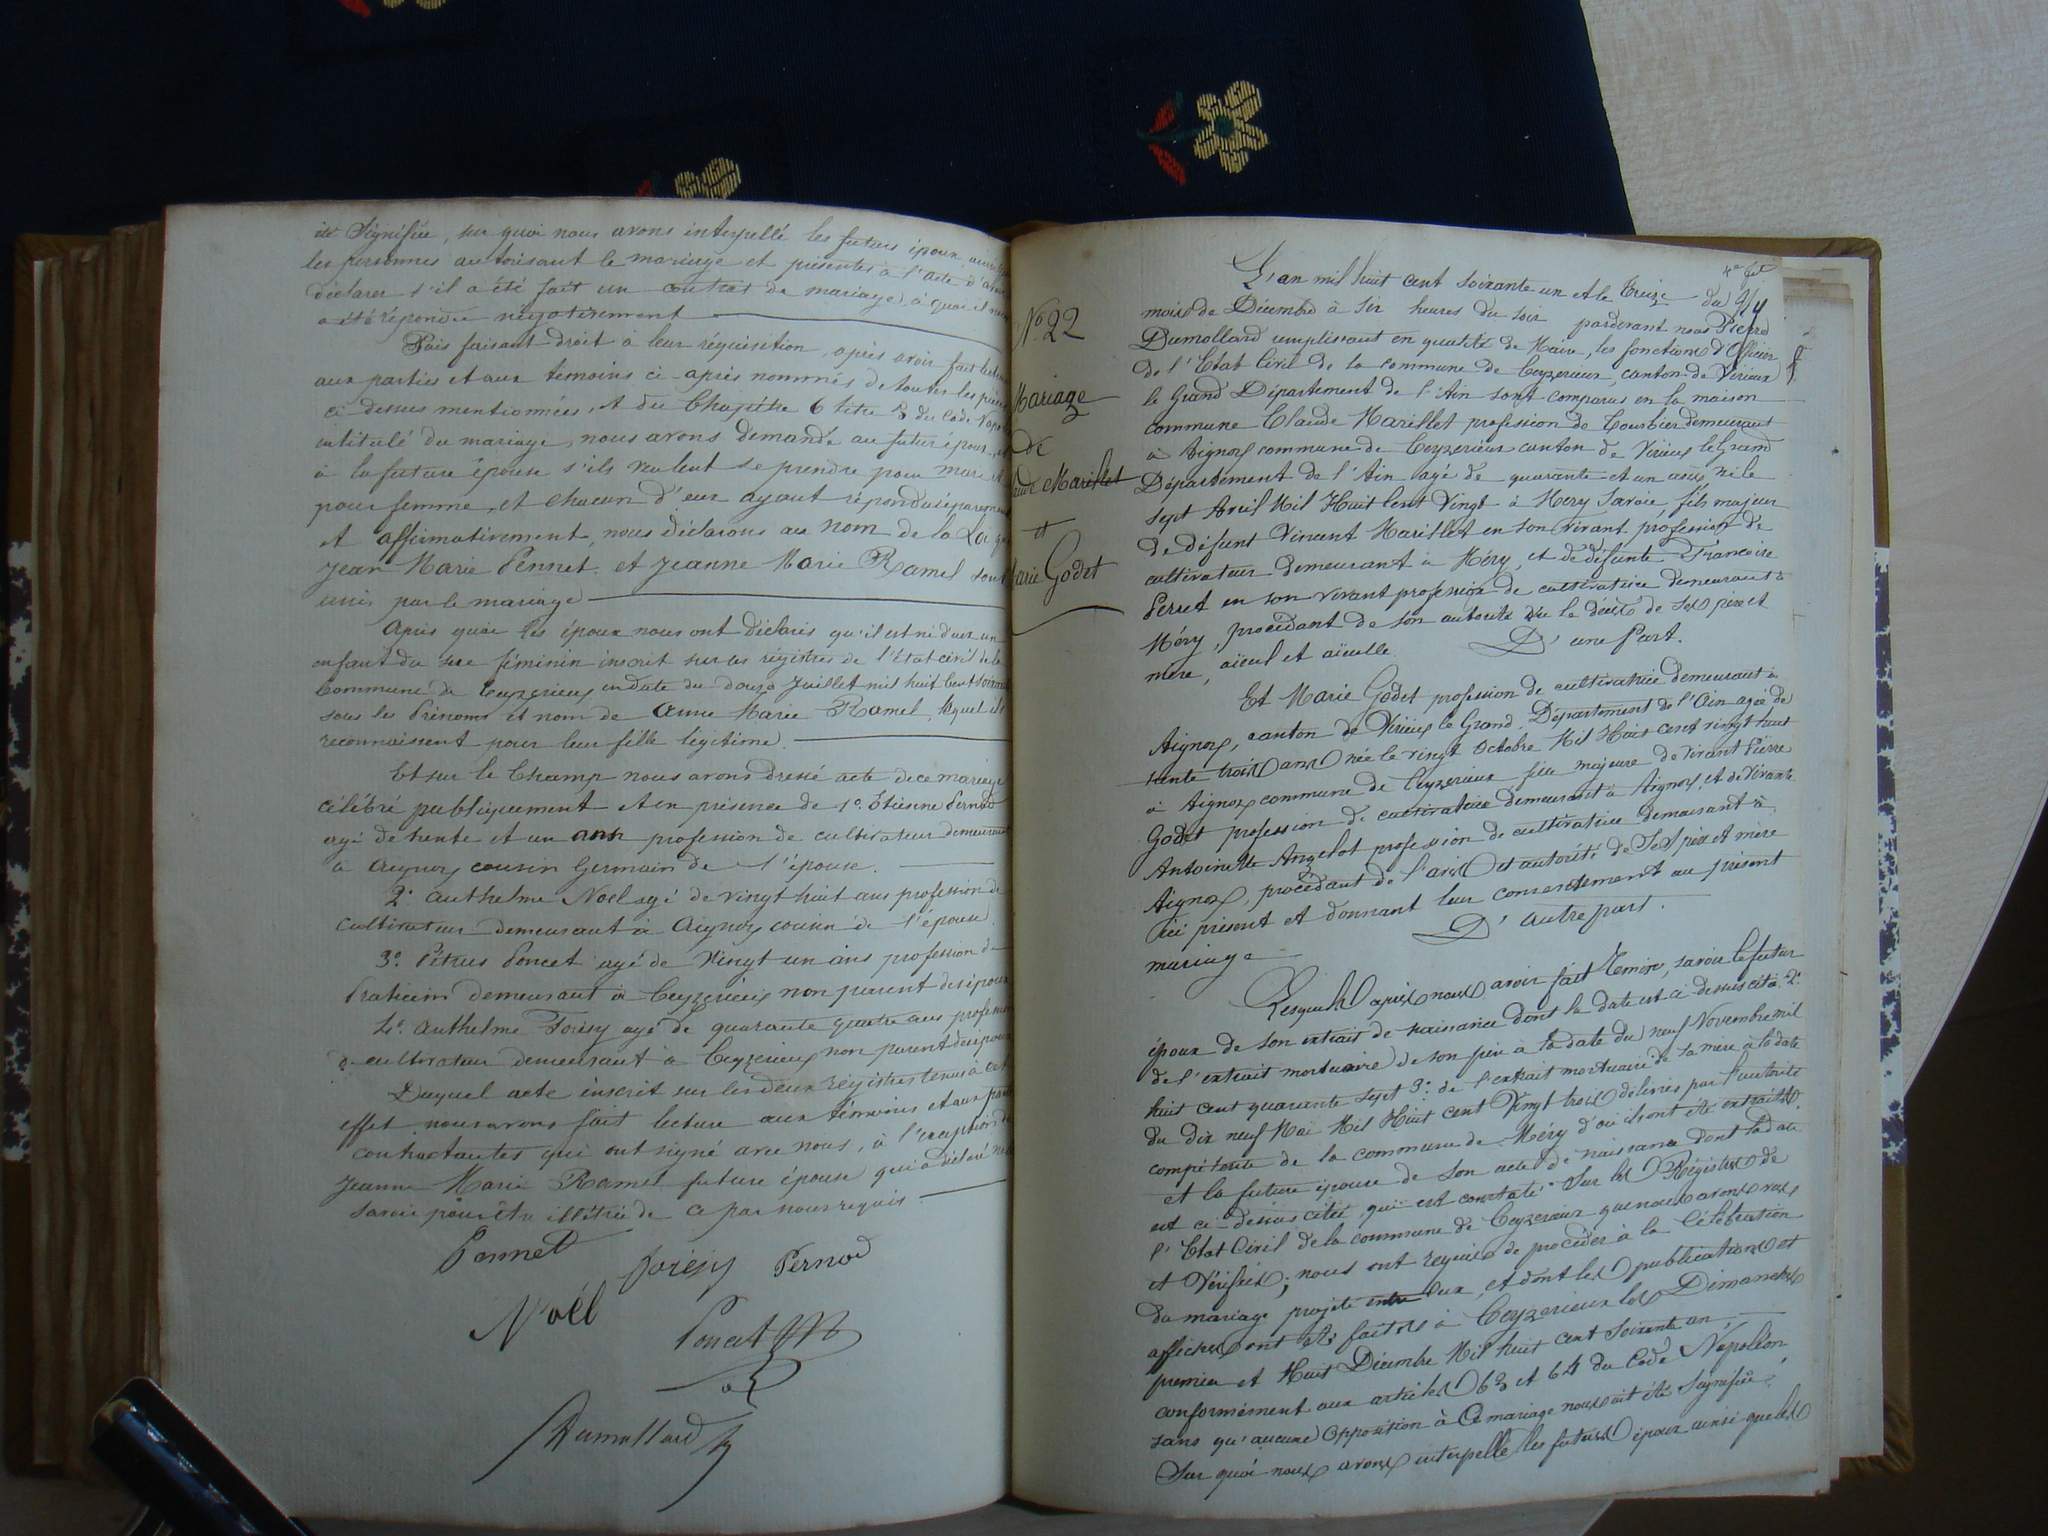 été Signifiée, sur quoi nous avons interpellé les futurs époux
les personnes autorisant le mariage et présentes à l'acte d'avoir
déclarer s'il a été fait un contrat de mariage, à quoi il nous
a été répondu négativement
Puis faisant droit à leur réquisition, après avoir fait lecture
aux parties et aux temoins ci-après nommés de toutes les pièces
ci dessus mentionnées et du Chapitre 6 titre 5 du Code Napo
intitulé du mariage, nous avons demandé au futur époux, et
à la future épouse s'ils veulent se prendre pour mari et
pour femme, et chacun d'eux ayant répondu séparement
et affirmativement, nous déclarons au nom de la Loi que
Jean Marie Pennet et Jeanne Marie Ramel sont
unis par le mariage
Après quoi les époux nous ont déclarés qu'il est né d'eux un
enfant du sexe féminin inscrit sur les régistres de l'état civil de la
commune de Ceyzerieux en date du douze Juillet mil huit cent soixante
sous les Prénoms et nom de Anne Marie Ramel, lequel ils
reconnaissent pour leur fille légitime.
Et sur le Champ nous avons dressé acte de ce mariage
célébré publiquement et en présence de 1º. Etienne Pernod
agé de trente et un ans profession de cultivateur demeurant
à Aignoz cousin Germain de l'épouse.
2º Anthelme Noel agé de vingt huit ans profession de
cultivateur demeurant à Aignoz cousin de l'épouse.
3º. Pétrus Poncet agé de Vingt un ans profession de
Praticien demeurant à Ceyzerieux non parent des époux
4º. Anthelme Forisy agé de quarante quatre ans profession
de cultivateur demeurant à Ceyzerieux non parent des époux
Duquel acte inscrit sur les deux régistres tenus à cet
effet nous avons fait lecture aux témoins et aux parties
contractantes qui ont signé avec nous, à l'exception de
Jeanne Marie Ramel future épouse qui a déclaré ne
savoir pour être illétrée de ce par nous requis
Pennet
Forisy Pernod
Noël
Poncet
Dumollard
Nº. 22
Mariage
de
Claude Mareillet
et
Marie Godet
L'an mil huit cent soixante un et le treize du
mois de Décembre à six heures du soir pardevant nous Pierre
Dumollard remplissant en qualité de Maire, les fonctions d'Officier
de l'Etat Civil de la commune de Ceyzerieux, canton de Virieux
le Grand Département de l'Ain sont comparus en la maison
commune Claude Mareillet profession de Tourbier demeurant
à Aignoz commune de Ceyzerieux canton de Virieux le Grand
Département de l'Ain agé de quarante et un ans, né le
sept Avril Mil Huit Cent Vingt à Mery Savoie, fils majeur
de défunt Vincent Mareillet en son vivant profession de
cultivateur demeurant à Méry, et de défunte Francoise
Perret en son vivant profession de cultivatrice demeurant à
Méry, procédant de son autorité vu le décès de ses père et
mère, aïeul et aïeulle D'une Part.
Et Marie Godet profession de cultivatrice demeurant à
Aignoz, canton de Virieux le Grand Département de l'Ain agée de
trente trois ans née le vingt Octobre Mil Huit cent vingt huit
à Aignoz commune de Ceyzerieux fille majeure de vivant Pierre
Godet profession de cultivateur demeurant à Aignoz, et de vivante
Antoinette Angelot profession de cultivatrice demeurant à
Aignoz, procédant de l'avis et autorité de Ses père et mère
ici présent et donnant leur consentement au présent
mariage D'autre part.
Lesquels après nous avoir fait Remise, savoir le futur
époux de son extrait de naissance dont la date est ci-dessus cité 2º.
de l'extrait mortuaire de son père à la date du neuf Novembre mil
huit cent quarante sept 3º. de l'extrait mortuaire de sa mère à la date
du dix neuf Mai Mil Huit cent Vingt trois délivrés par l'autorité
compétente de la commune de Méry d'où ils ont été extraits
et la future épouse de son acte de naissance dont la date
est ci-dessus citée qui est constaté Sur les Régistres de
l'Etat Civil de la commune de Ceyzerieux que nous avons vus
et Vérifiés; nous ont requis de procéder à la Célébration
du mariage projeté entre eux, et dont les publications et
affiches ont été faites à Ceyzerieux les Dimanches
premier et Huit Décembre Mil huit cent soixante un,
conformément aux articles 63 et 64 du Code Napoléon,
sans qu'aucune Opposition à Ce mariage nous ait été signifiée,
Sur quoi nous avons interpellé les futurs époux ainsi que les